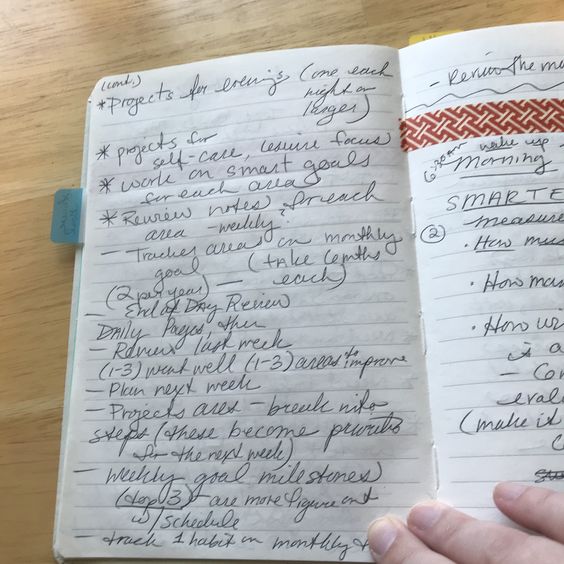 (cont.)
* Projects for evenings (one each
night or
longer)
* projects for
self-care, leisure focus
* work on smart goals
for each area
* Review notes for each
area - weekly?
- Tracker areas in monthly
goal (take 6 mths
(2 per year) — each)
- End of Day Review
Daily Pages, then
- Review last week
(1-3) went well (1-3) areas to improve
- Plan next week
- Projects area - break into
steps (these become priorities
for the next week)
- Weekly goal milestones
(top 3) - are more figure out
w/ schedule
- track 1 habit in monthly
- Review the
6:30am wake up
Morning
SMARTE
measure
(2)
· How
· How
· How
is a
-
(make it